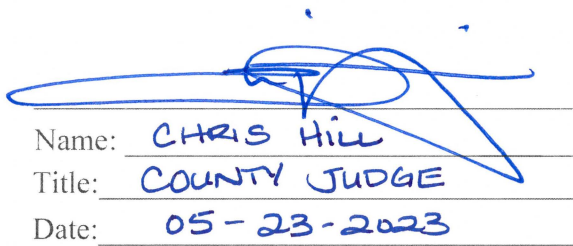 Name: CHRIS HILL
Title: COUNTY JUDGE
Date: 05-23-2023